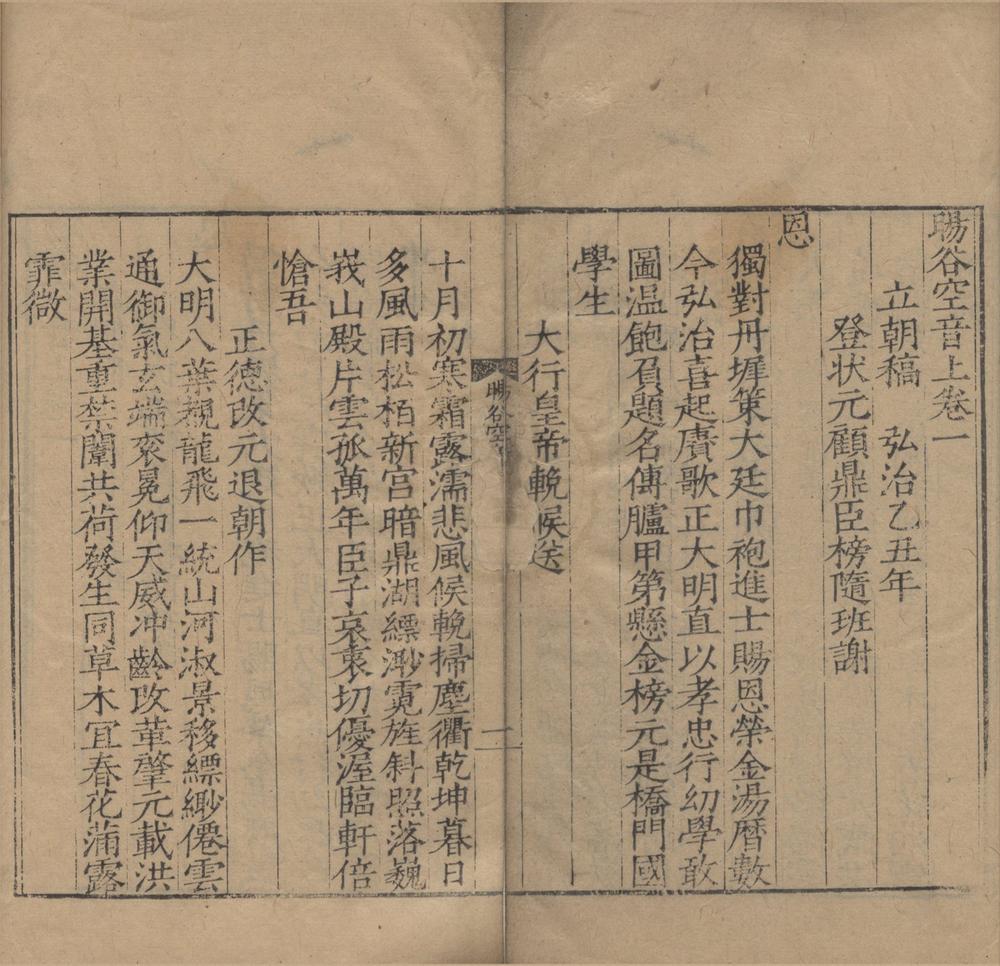 暘谷空音上卷一
立朝稿　弘治乙丑年
登狀元顧鼎臣榜隨班謝
恩
獨對丹墀策大廷巾袍進士賜恩榮金湯曆數
今弘治喜起賡歌正大明直以孝忠行幼學敢
圖温飽負題名傳臚甲第懸金榜元是橋門國
學生
大行皇帝輓候送
暘谷空
一
十月初寒霜露濡悲風候輓掃塵衢乾坤暮日
多風雨松栢新宫暗鼎湖縹渺霓旌斜照落巍
峩山殿片雲孤萬年臣子哀衷切優渥臨軒倍
愴吾
正德改元退朝作
大明八葉覩龍飛一統山河淑景移縹緲僊雲
通御氣玄端衮冕仰天威冲齡改革肇元載洪
業開基重禁闈共荷發生同草木宜春花蒲露
霏微